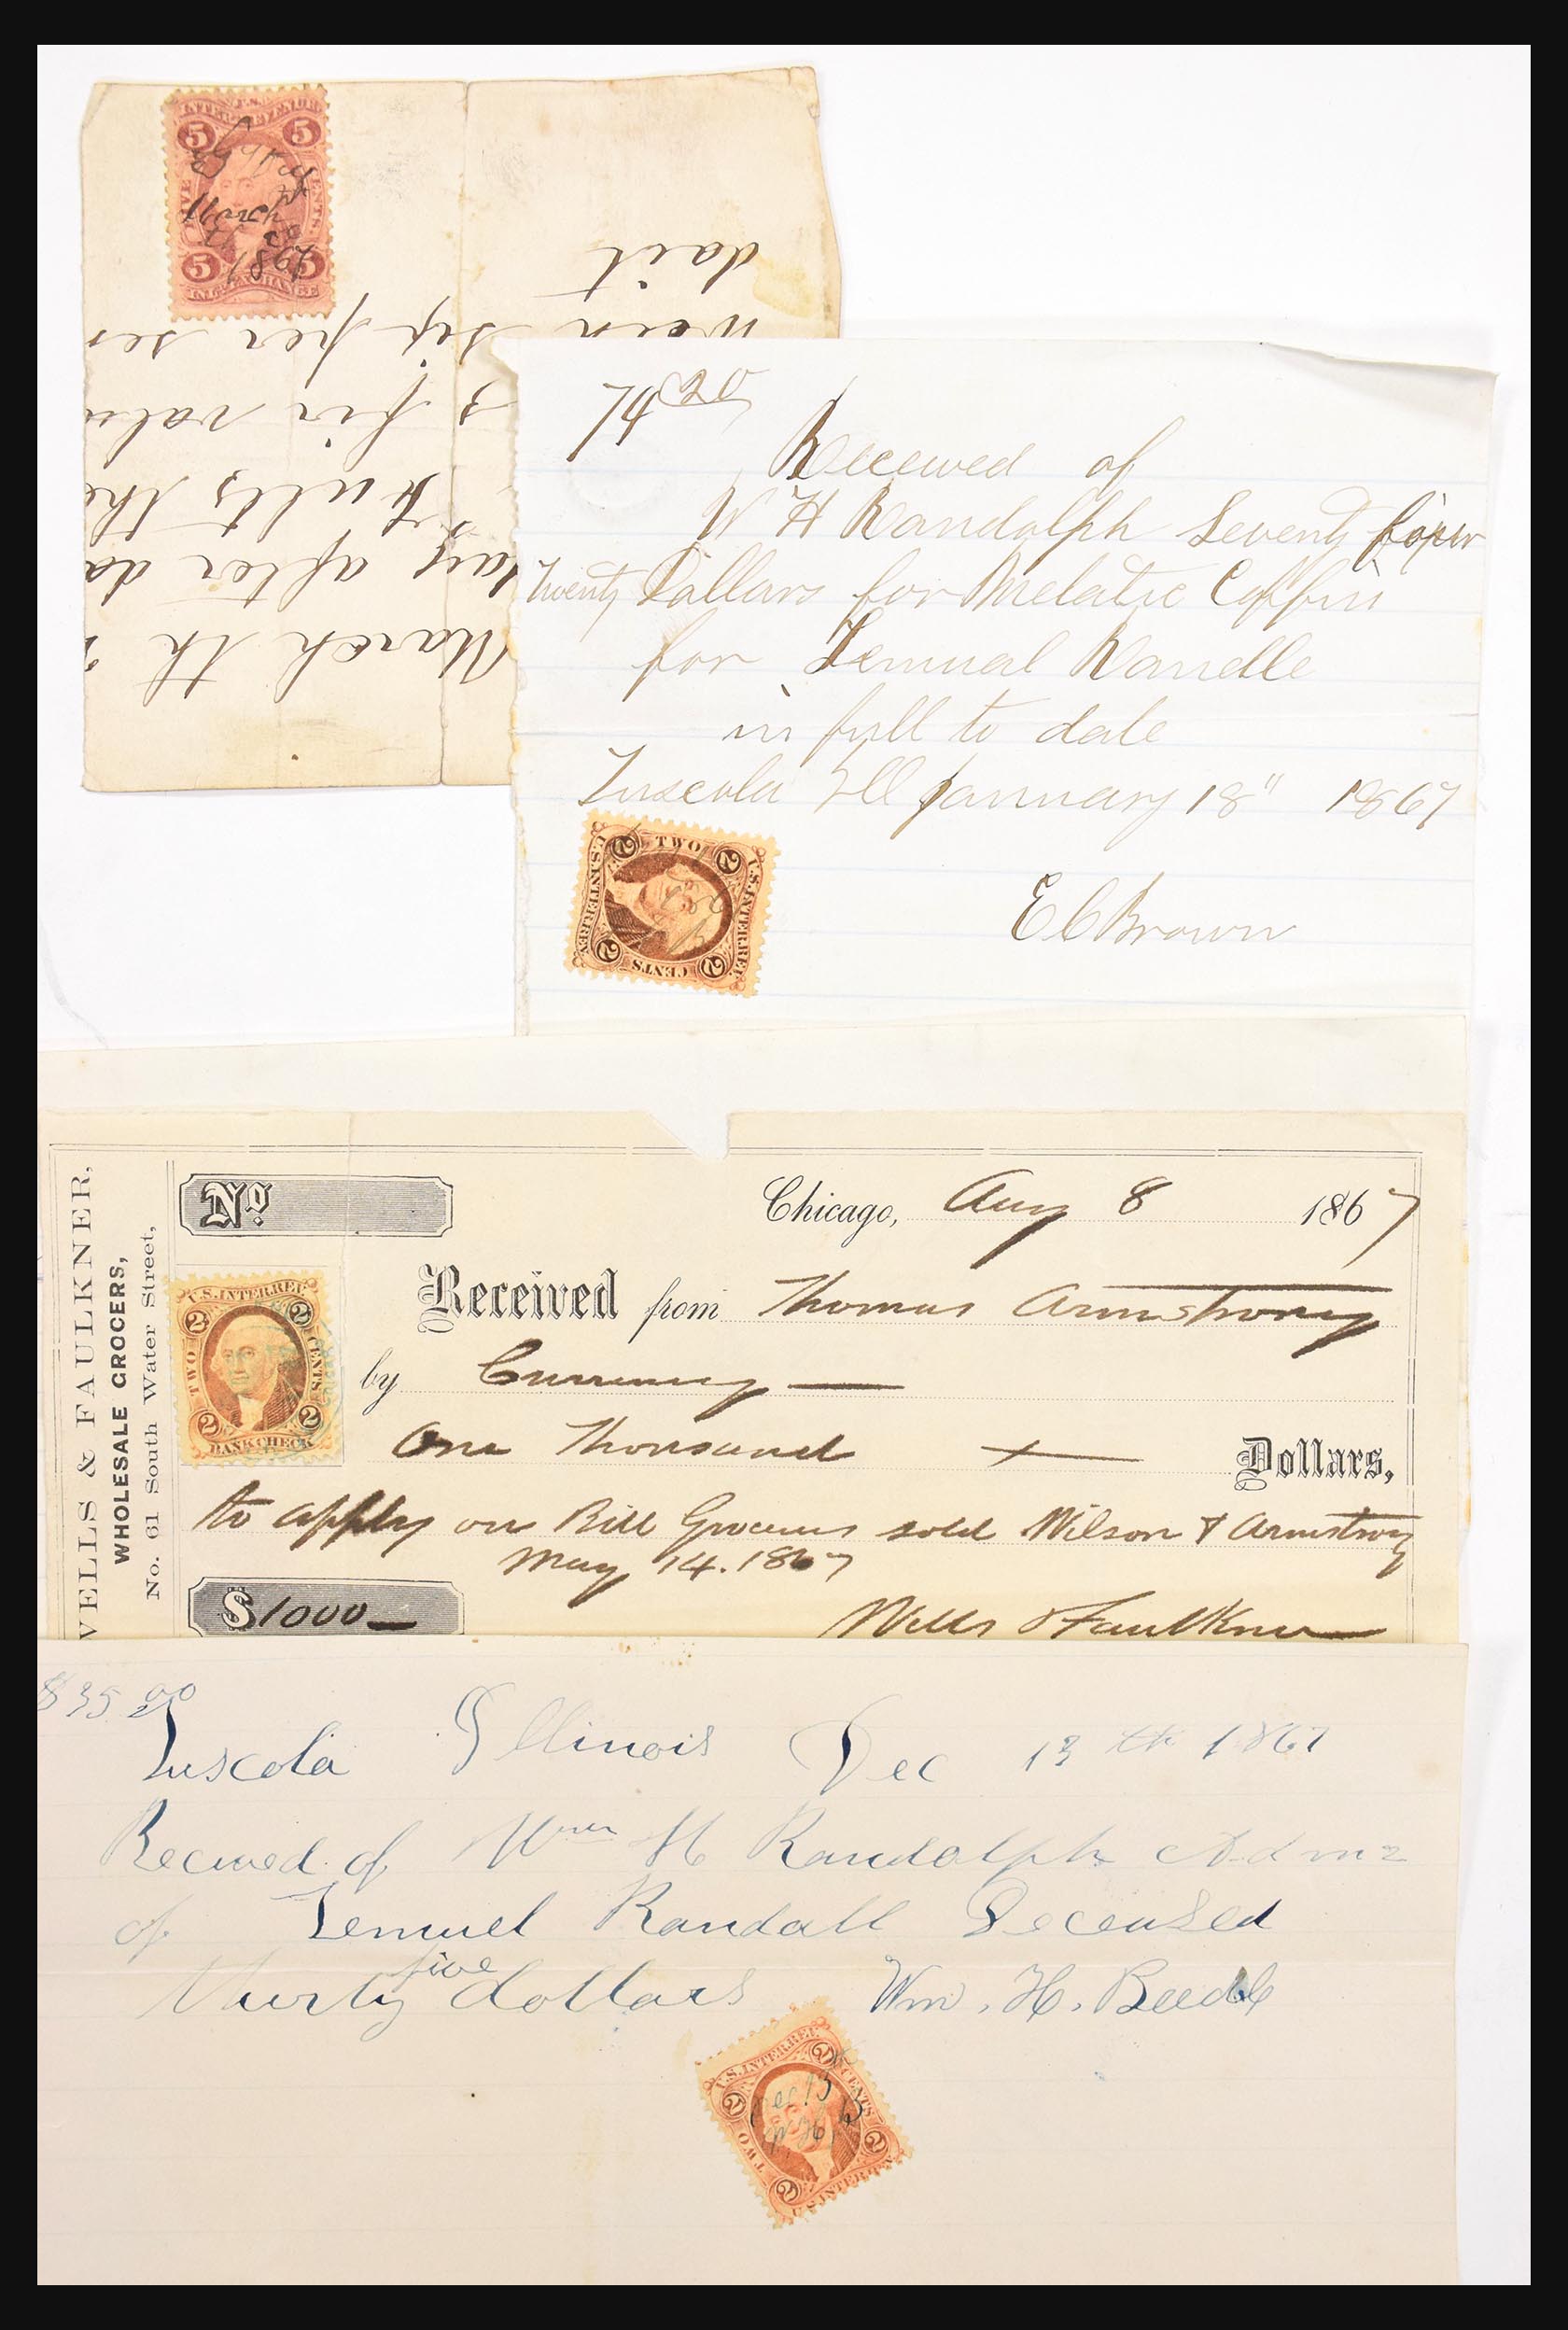 U.S.
INTER. REVENUE
5 5
FIVE CENTS
1867
5 5
INL. EXCHANGE
March th
day after da
Fults the
3 for valu
dait
74 20
Receewed of
W H Randolph Seventy four
Twenty Dollars for Melatic Coffin
for Lemual Randle
in full to date
Tuscola Ill January 18" 1867
E C Brown
U.S. INTER. REV.
2 2
TWO CENTS
2 2
No.
Chicago, Aug 8 1867
WELLS & FAULKNER,
WHOLESALE GROCERS,
No. 61 South Water Street,
Received from Thomas Armstrong
by Currency
One Thousand Dollars,
to apply on Bill Groceries sold Wilson & Armstrong
May 14. 1867
$1000
Wells & Faulkner
U.S. INTER. REV.
2 2
TWO CENTS
2 2
BANK CHECK
$35.00
Tuscola Illinois Dec 13th 1867
Received of Wm H Randolph Admr
of Lemuel Randall Deceased
thirty five dollars Wm. H. Beedle
U.S. INTER. REV.
2 2
TWO CENTS
Dec 13
W H B
2 2